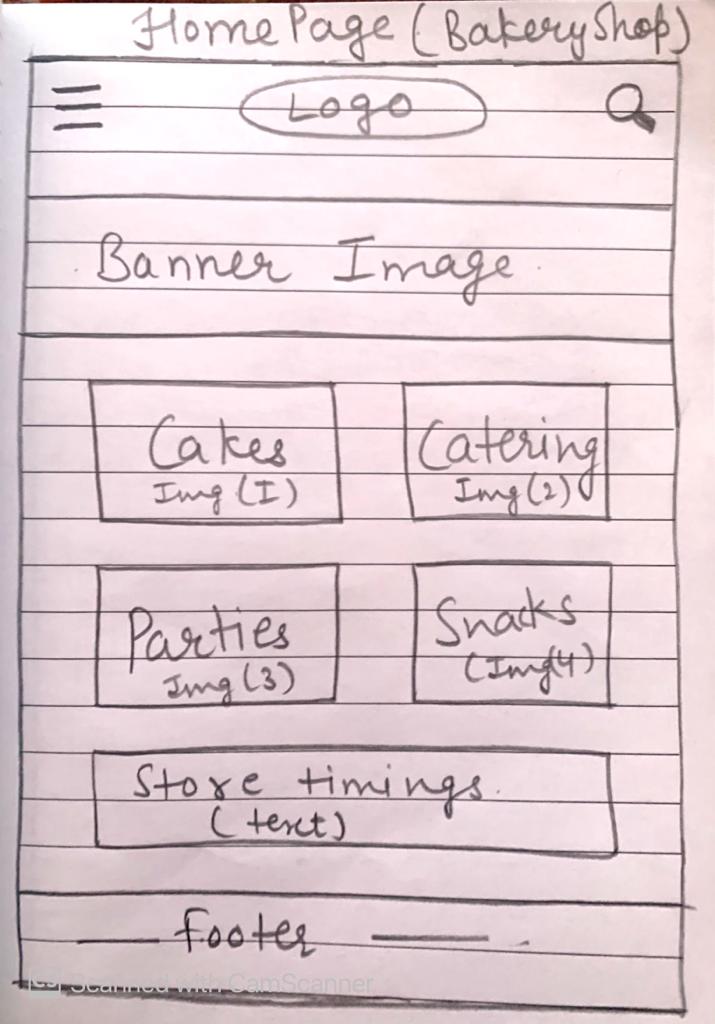 Home Page (Bakery Shop)
Logo
Banner Image
Cakes
Img (I)
Catering
Img (2)
Parties
Img (3)
Snacks
(Img(4)
Store timings.
(text)
Footer
Scanned with CamScanner